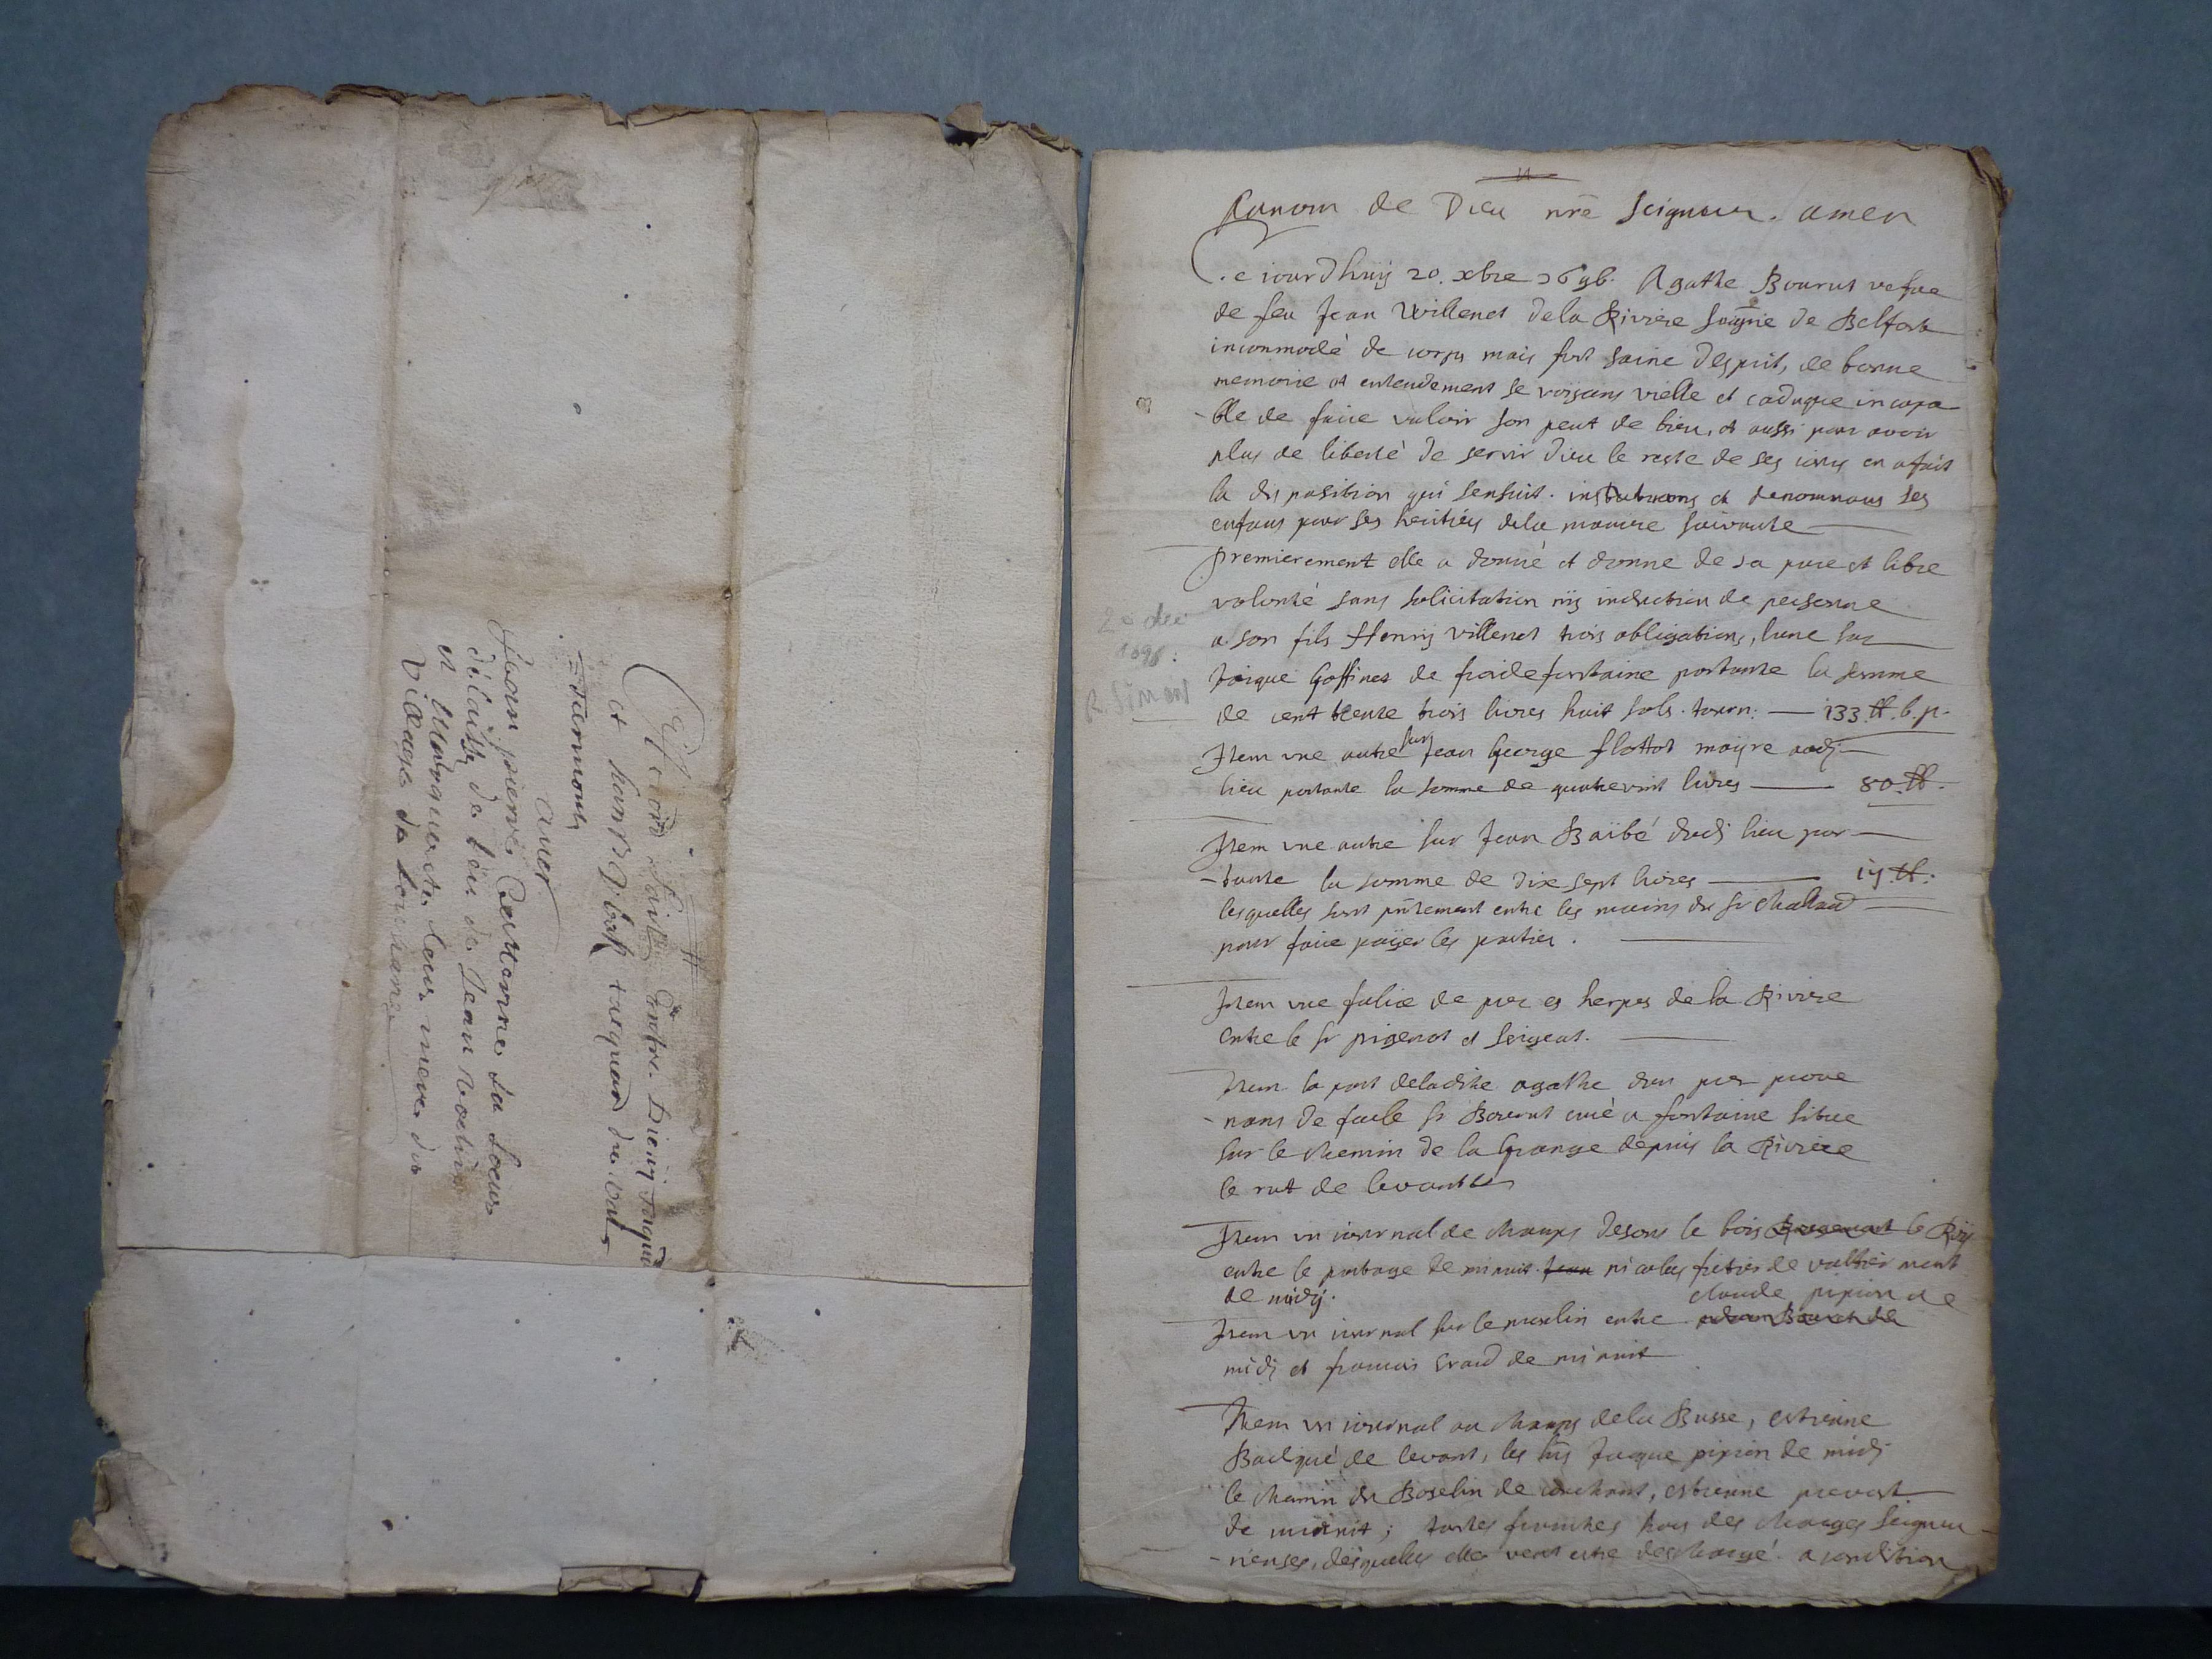 Traité faict Entre Dieuj Jacquot
et hans Dibolt tacquard du val
Suarmont
auec
Jean pierre Cuenin sa soeur
délaissé de feu de Jean
et Marguerite leur mere du
village de
Aunom de Dieu nre̅ seigneur. amen
Ce iourdhuÿ 20. xbre 1696. Agathe Bourut vefue
de feu Jean Willenet dela Riviere Seig̅rie de Belfort
incommodé de corps mais fort saine desprit, de bonne
memorie et entendement se voÿant vielle et caduque incapa-
-ble de faire valoir son peut de bien, et aussi pour avoir
plus de liberté de servir Dieu le reste de ses iours en a fait
la disposition qui sensuit. instituons et denommons ses
enfans pour ses heritiers dela maniere suivante
Premierement elle a donné et donne de sa pure et libre
volonté sans solicitation nÿ induction de personne
a son fils Henrÿ Villenet trois obligations, lune sur
Goffinet de froidefontaine portante la somme
de cent trente trois livres huit sols. — 133.tt.
20 dec
1696.
R. Simon
Item vne autre sur Jean George flottot maÿre audi
lieu portante la somme de quatrevint livres — 80.tt.
Item vne autre sur Jean Baïbé dudi lieu por-
-tante la somme de dix sept livres — 17.tt.
lesquelles sont pn̅tement entre les mains du sr
pour faire paÿer les parties.
Item vne fulie de prez es herpes de la Riviere
entre le sr pigenot et sergent.
Item la part deladite agathe dun prez prove
-nans de fut le sr Bourut curé a fontaine situe
sur le chemin de la Grange depuis la Riviere
le rut de levant
Item vn iournal de champs desous le bois le
entre le partage de minuit nicolas de
de midÿ.
claude pipion de
Item vn iournal sur le moulin entre
midi et francois de minuit
Item vn iournal au champs dela Busse, estienne
de levant, les hrs̅ Jacque pipion de midi
le chemin du Boselin de couchant, estienne prevost
de minuit; toutes franches hors des charges seigneu-
-rieuses, desquelles elle veut estre deschargé. a condition